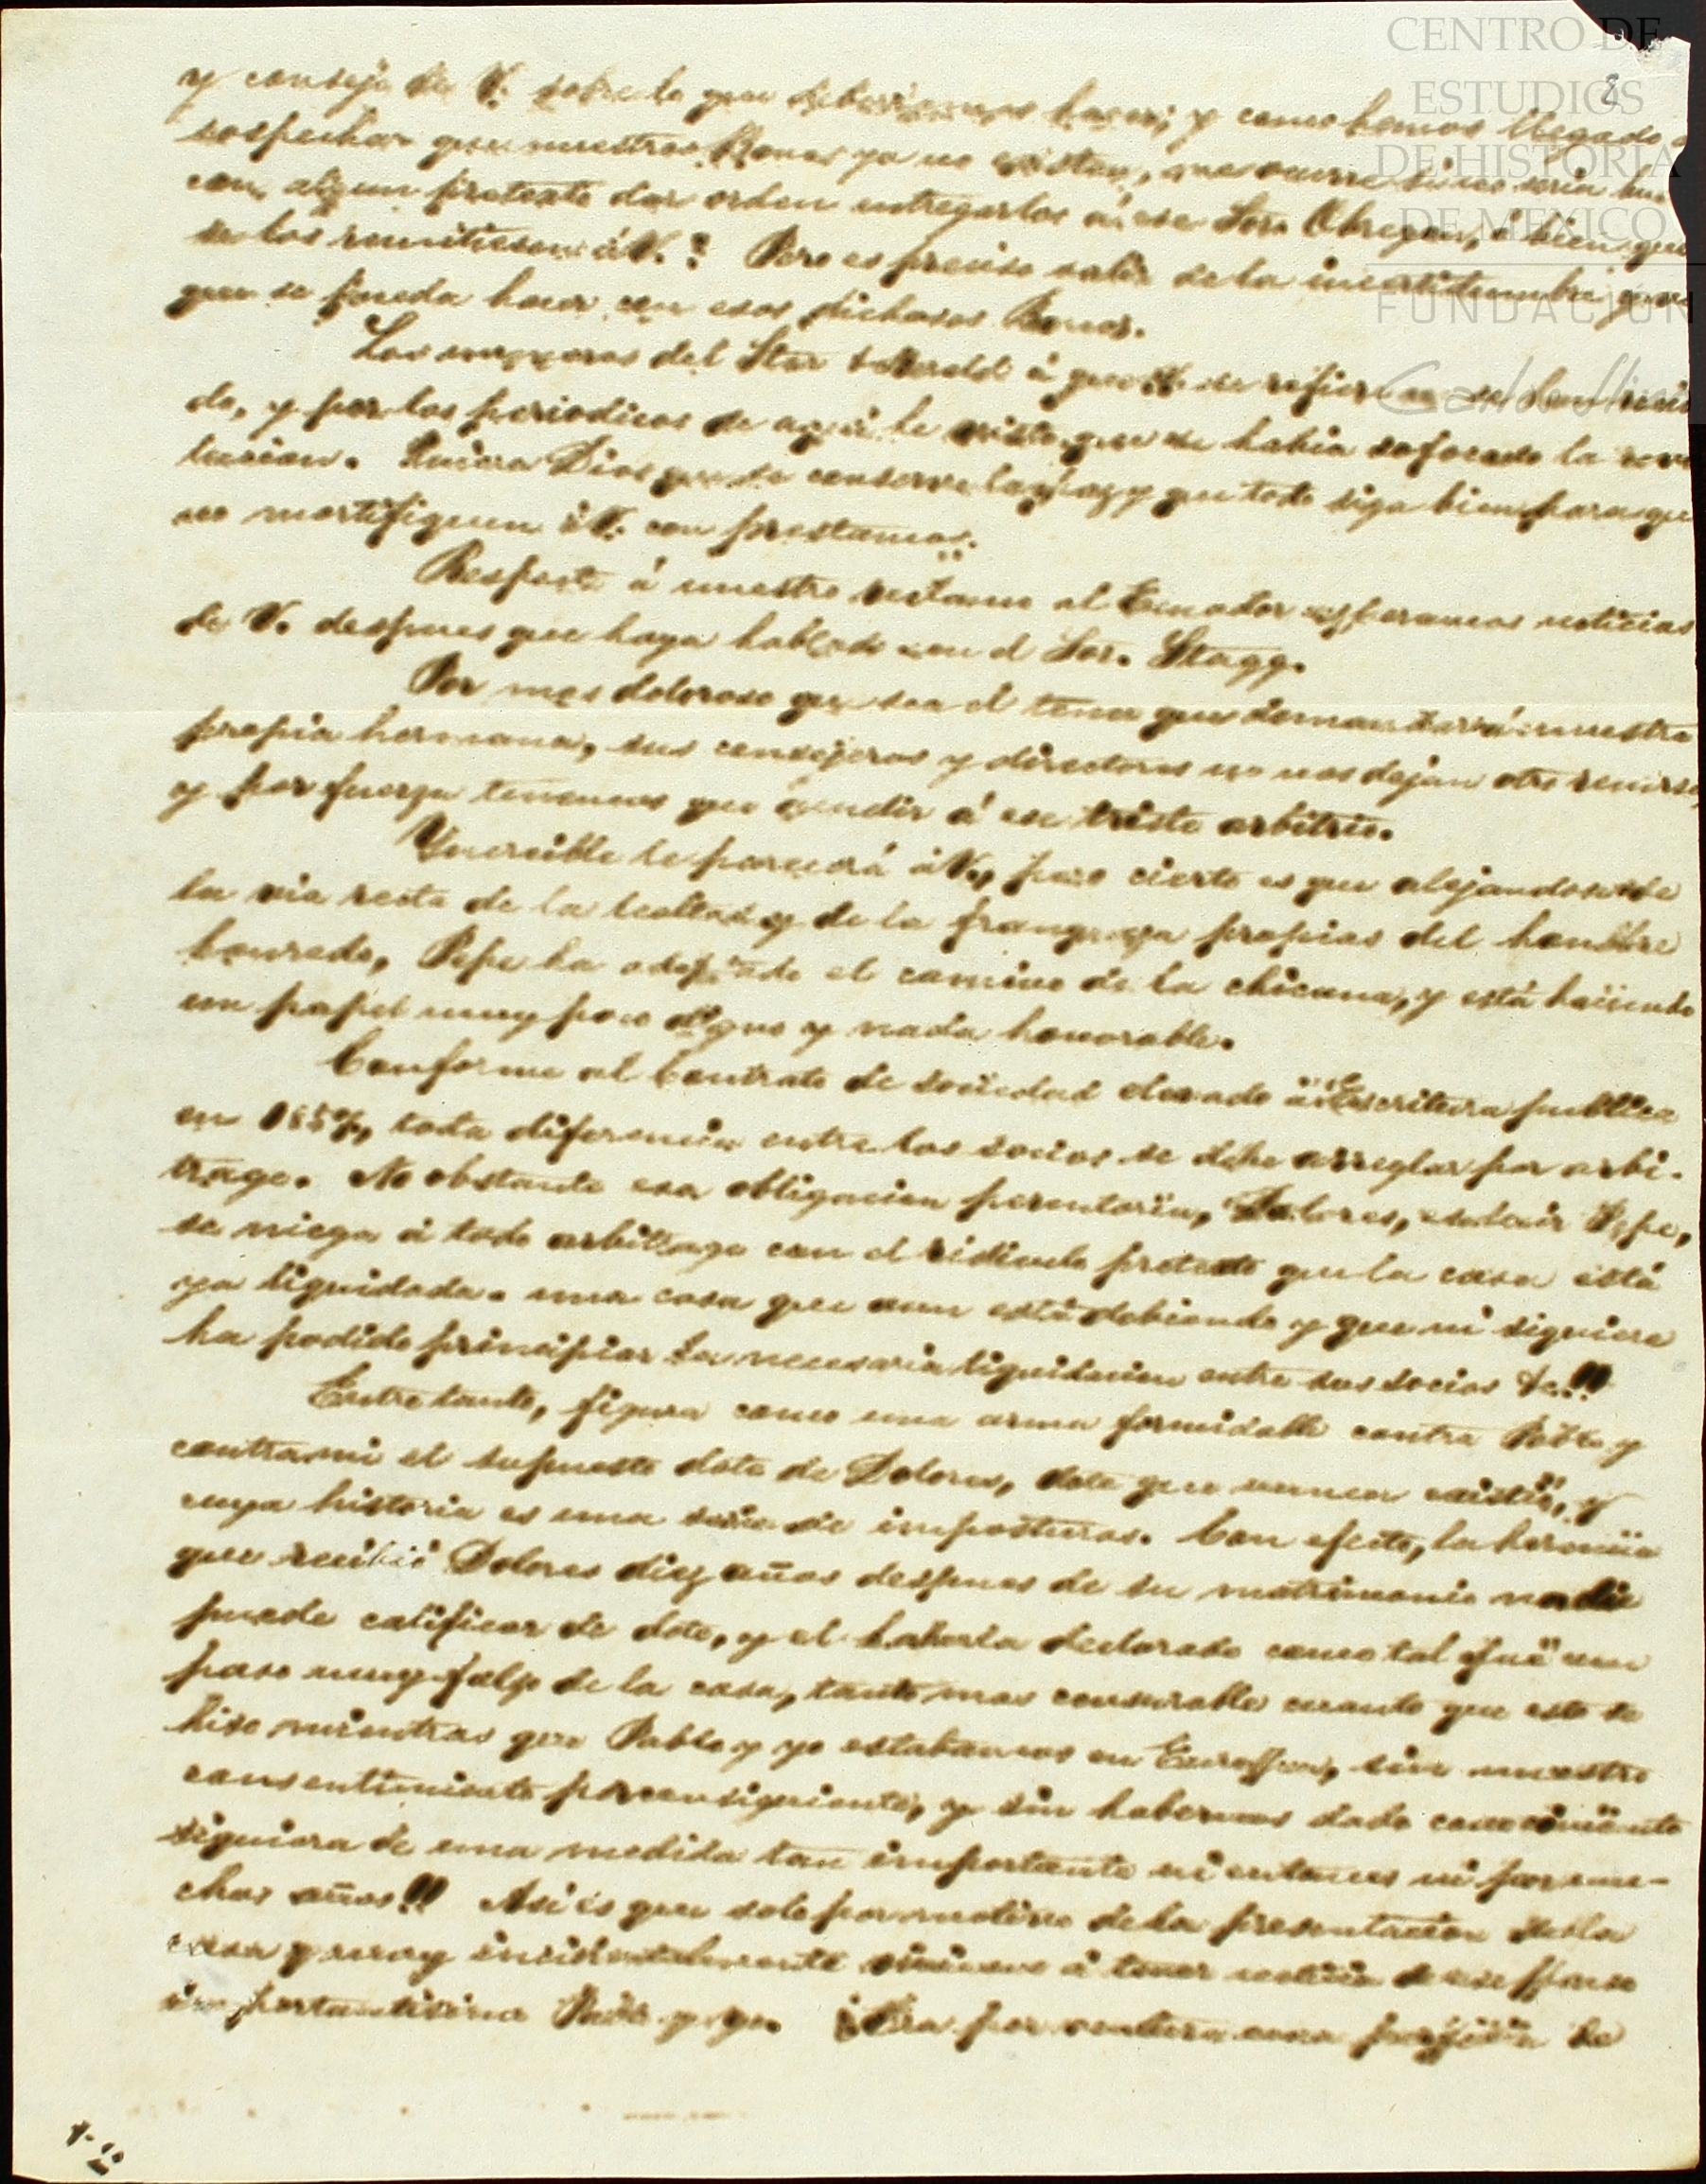 CENTRO DE
ESTUDIOS
DE HISTORIA
DE MEXICO
FUNDACION
Carlos Slim
2
y consejo de V. sobre lo que deberiamos hacer; y como hemos llegado a
sospechar que nuestros Bonos ya no existan, me ocurre si no seria
con algun pretexto dar orden entregarlos á ese Sor. Obregon, ó bien que
se los remitiesen á V.? Pero es preciso salir de la incertidumbre y ver
que se pueda hacer con esos dichosos Bonos.
Los numeros del Star & Herald á que V. se refiere no se han reci
do, y por los periodicos de aqui he visto que se habia sofocado la revo
lucion. Quiera Dios que se conserve la paz y que todo siga bien para que
no mortifiquen á V. con prestamos.
Respecto á nuestro reclamo al Ecuador esperamos noticias
de V. despues que haya hablado con el Sor. Stagg.
Por mas doloroso que sea el tener que demandar á nuestra
propia hermana, sus consejeros y directores no nos dejan otro recurso,
y por fuerza tenemos que acudir á ese triste arbitrio.
Yncreible le parecerá á V., pero cierto es que alejandose de
la via recta de la lealtad y de la franqueza propias del hombre
honrado, Pepe ha adoptado el camino de la chicana, y está haciendo
un papel muy poco digno y nada honorable.
Conforme al Contrato de sociedad elevado á Escritura publica
en 185, toda diferencia entre los socios se debe arreglar por arbi-
trage. No obstante esa obligacion perentoria, Dolores, es decir Pepe,
se niega á todo arbitrage con el ridiculo pretexto que la casa está
ya liquidada. una casa que aun está debiendo y que ni siquiera
ha podido principiar la necesaria liquidacion entre sus socios &c.!!!
Entre tanto, figura como una arma formidable contra Pablo y
contra mi el supuesto dote de Dolores, dote que nunca existió, y
cuya historia es una serie de imposturas. Con efecto, la herencia
que recibió Dolores diez años despues de su matrimonio nadie
puede calificar de dote, y el haberla declarado como tal fué un
paso muy falso de la casa, tanto mas censurable cuanto que esto se
hizo mientras que Pablo y yo estabamos en Europa, sin nuestro
consentimiento por consiguiente, y sin habernos dado conocimiento
siquiera de una medida tan importante ni entonces ni por mu-
chos años!!! Asi es que solo por motivo de la presentacion de la
casa y muy incidentalmente vinimos á tener noticia de ese paso
importantisimo Pablo y yo. ¿Era por ventura una de
1-2